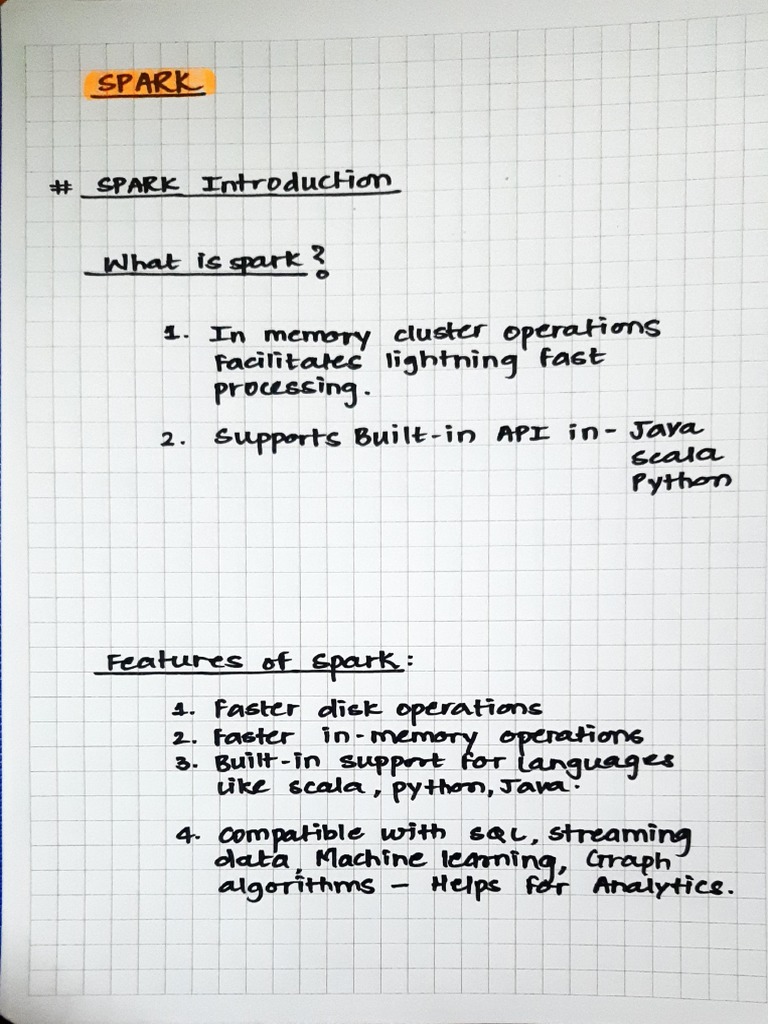 SPARK
# SPARK Introduction
What is spark?
1. In memory cluster operations
facilitates lightning fast
processing.
2. Supports Built-in API in- Java
Scala
Python
Features of spark:
1. Faster disk operations
2. Faster in-memory operations
3. Built-in support for languages
like scala, python, Java.
4. Compatible with SQL, streaming
data, Machine learning, Graph
algorithms - Helps for Analytics.